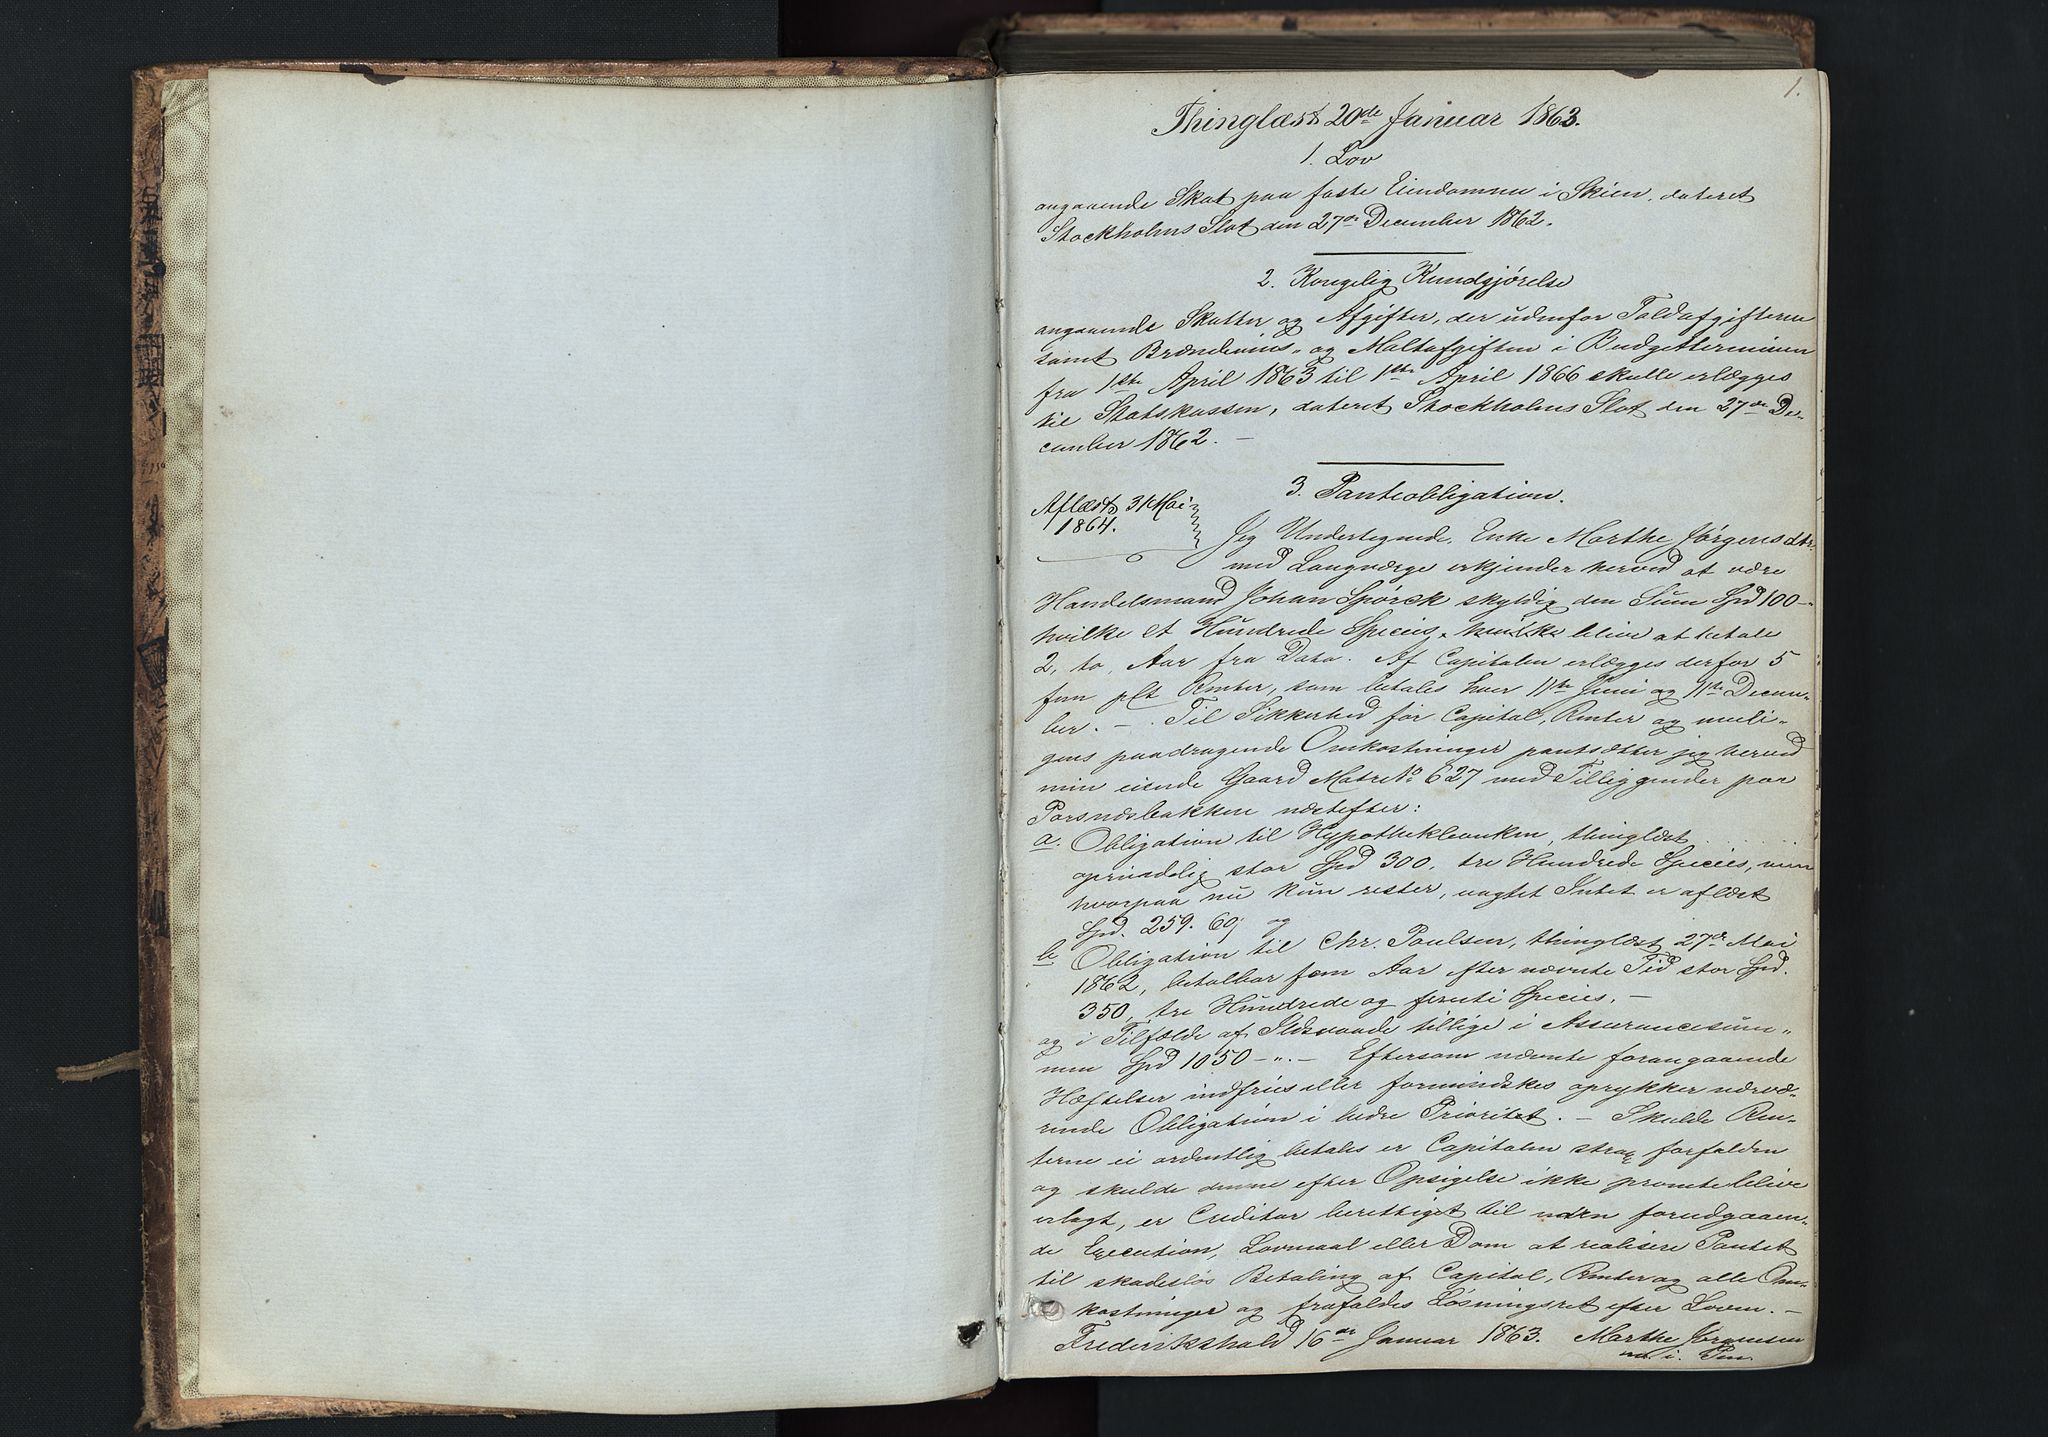 1.
Thinglæst 20de Januar 1863.
1. Lov
angaaende Skat paa faste Eiendomme i Skien, dateret
Stockholms Slot den 27de December 1862.
2. Kongelig Kundgjørelse
angaaende Skatter og Afgifter, der udenfor Toldafgifterne
samt Brændeviins- og Maltafgiften i Budgetterminen
fra 1ste April 1863 til 1ste April 1866 skulle erlægges
til Statskassen, dateret Stockholms Slot den 27de De-
cember 1862. —
3. Panteobligation.
Aflæst 31 Mai
1864.
Jeg Undertegnede, Enke Marthe Jørgensdtr.
med Laugværge erkjender herved at være
Handelsmand Johan Spørck skyldig den Sum Spd 100 -"
hvilke et Hundrede Species, blive at betale
2, to, Aar fra Dato. Af Capitalen erlægges derfor 5
fem pCt Renter, som betales hver 11te Juni og 11te Decem-
ber. — Til Sikkerhed for Capital, Renter og muli-
gens paadragende Omkostninger pantsætter jeg herved
min eiende Gaard Matr No 627 med Tilliggender paa
Porsnæsbakken næstefter:
a. Obligation til Hypothekbanken, thinglæst . . . . . .
oprindelig stor Spd 300, tre Hundrede Species, men
hvorpaa nu kun rester, uagtet Intet er aflæst
Spd. 259. 60, og
b Obligation til Chr. Paulsen, thinglæst 27de Mai
1862, betalbar fem Aar efter nævnte Tid stor Spd.
350, tre Hundrede og femti Species. —
og i Tilfælde af Ildsvaade tillige i Assurancesum-
men Spd 1050 - ". — Eftersom nævnte forangaaende
Hæftelser indfries eller formindskes oprykker nærvæ-
rende Obligation i bedre Prioritet. — Skulde Ren-
terne ei ordentlig betales er Capitalen strax forfalden
og skulde denne efter Opsigelse ikke promte blive
erlagt, er Creditor berettiget til uden forudgaaen-
de Execution, Lovmaal eller Dom at realisere Pantet
til skadesløs Betaling af Capital, Renter og alle Om-
kostninger og frafaldes Løsningsret efter Loven. —
Frederikshald 16de Januar 1863. Marthe Jørgensen
m. i. Pen